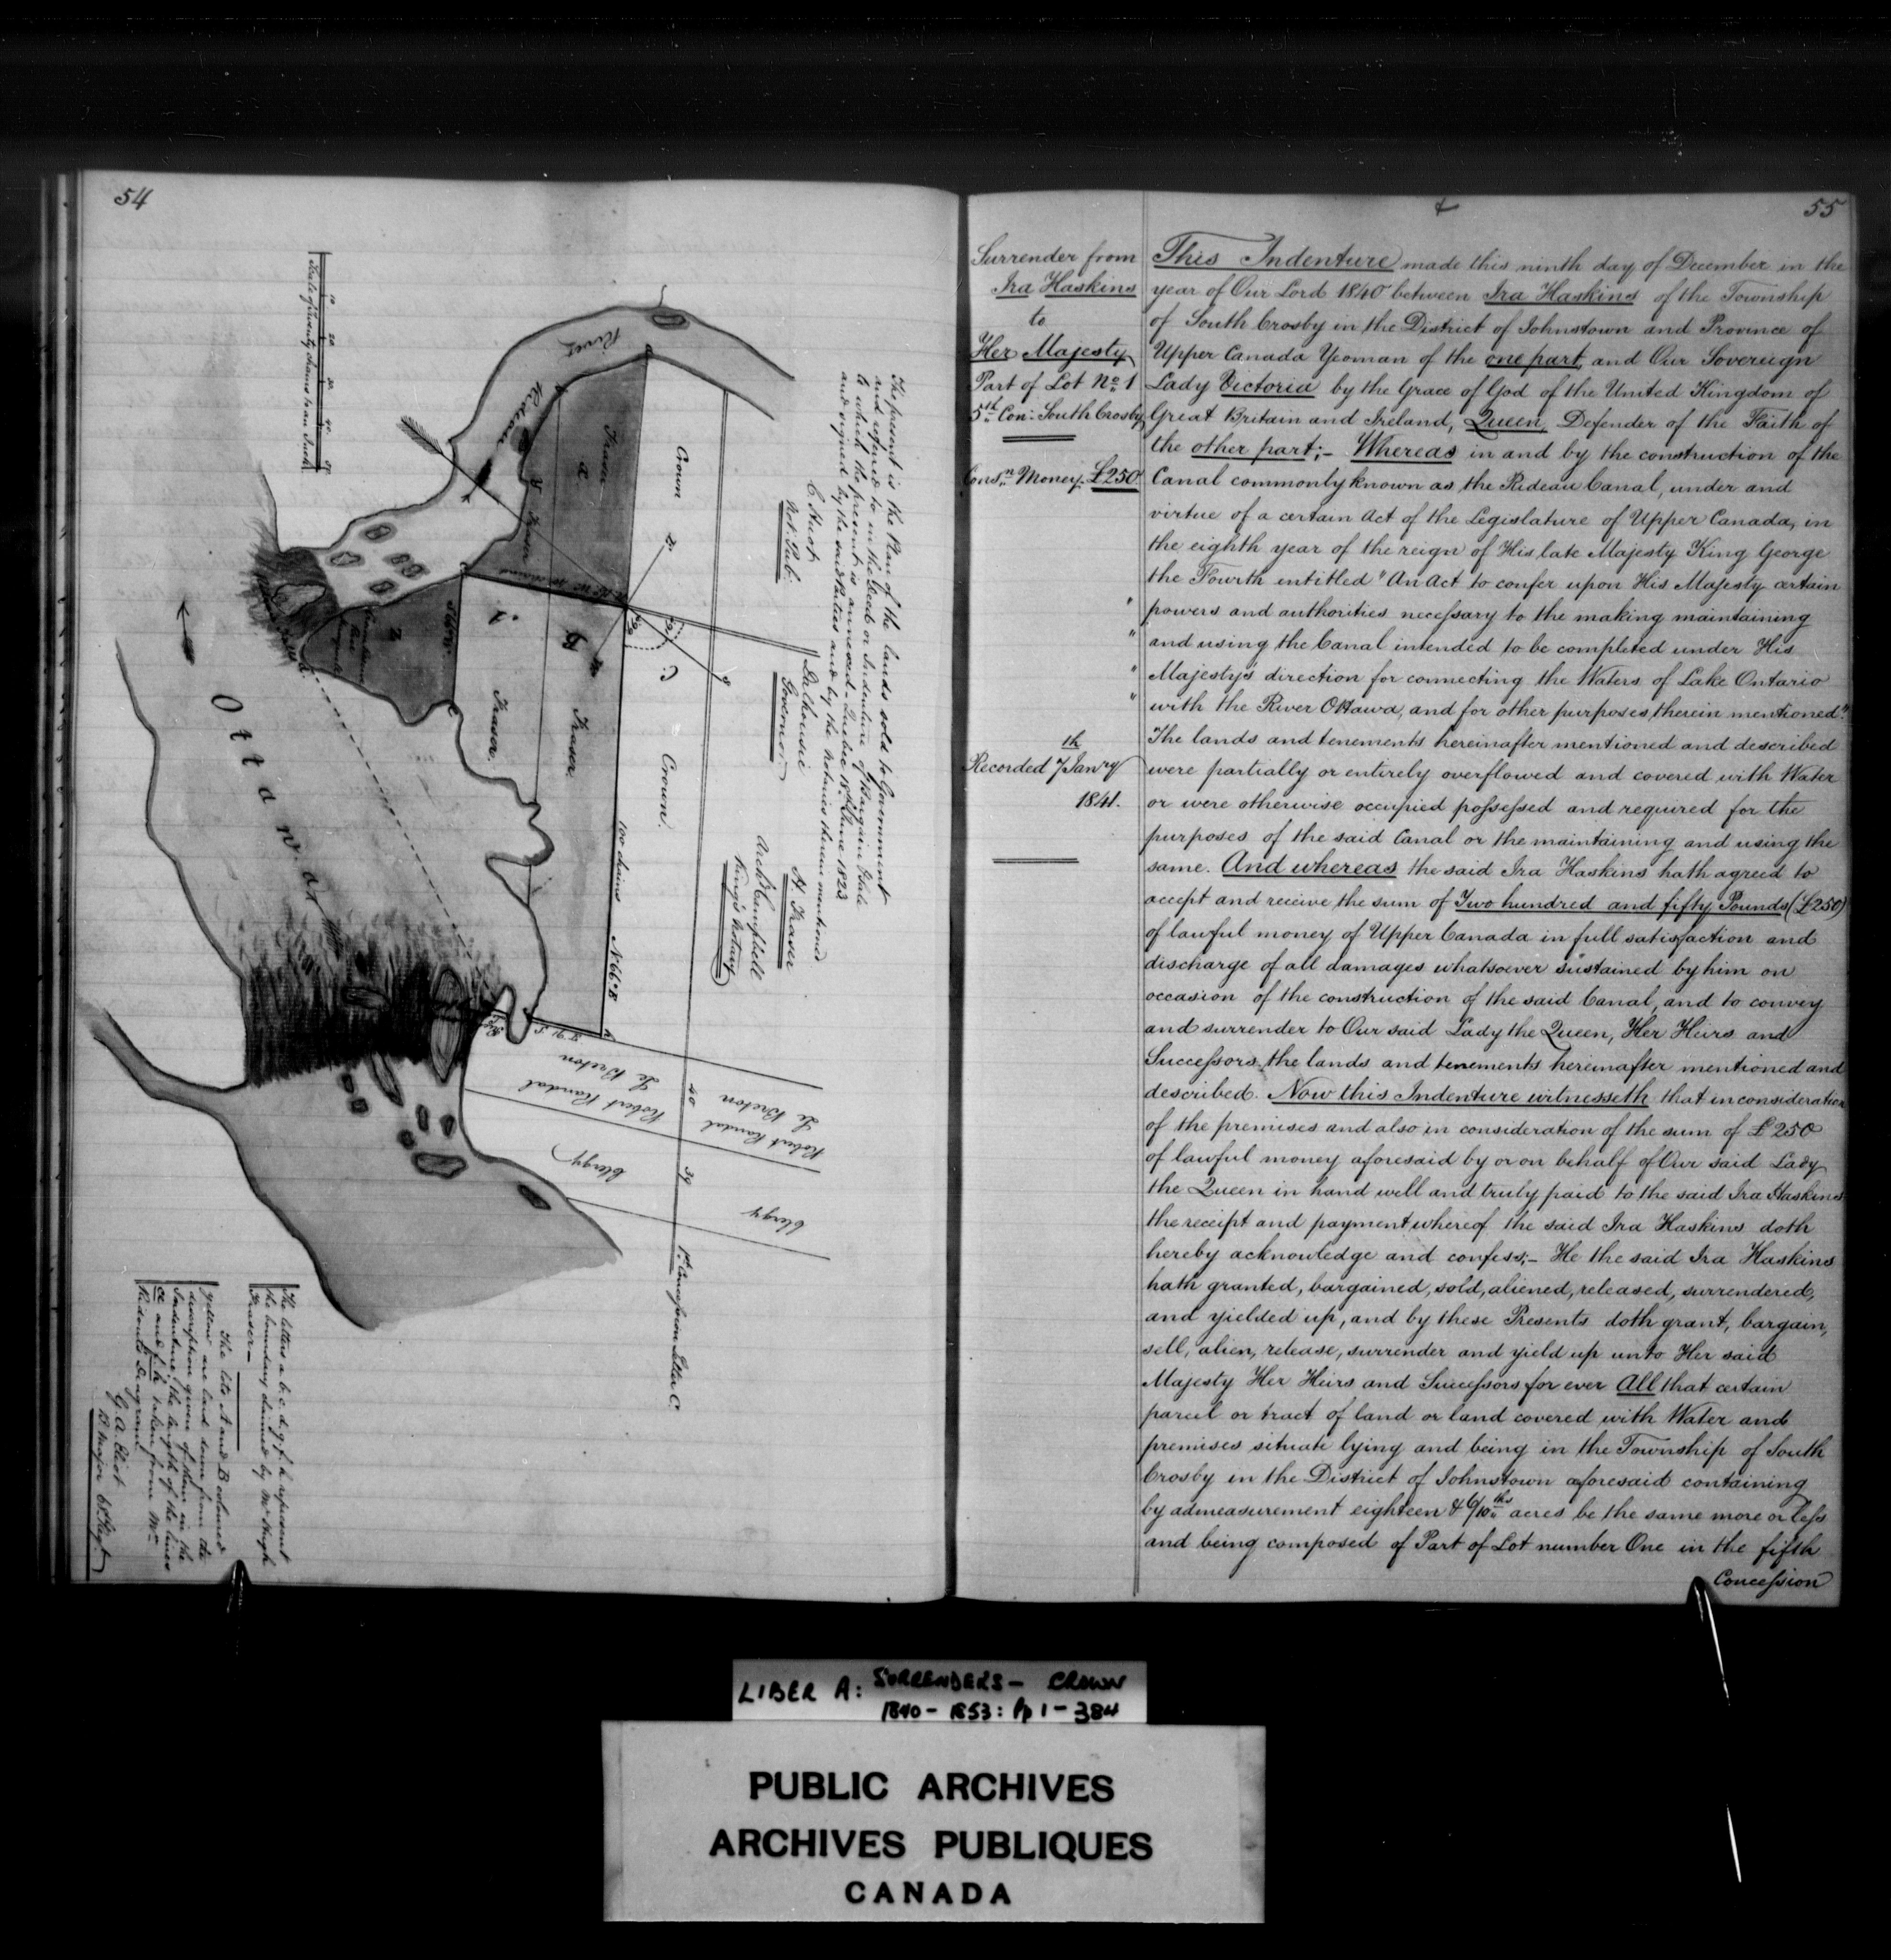 54
Scale of twenty chains to an Inch
10
20
30
40
River
Rideau
Fraser
Crown
a
Crown
C
B
Fraser
Fraser
100 chains
N 66° E
Ottawa
Le Breton
Robert Randal
Clergy
Le Breton
Robert Randal
Clergy
40
39
1st Concession Letter C.
The present is the Plan of the lands sold to Government
and referred to in the Deed or Indenture of Bargain & Sale
to which the present is annexed — Quebec 18th June 1823
and signed by the said Parties and by the Notaries therein mentioned
C. Huot
Not: Pub:
Dalhousie
Governor
H. Fraser
Arch Campbell
King's Notary
The letters a. b. c. d. g. f. h. represent
the boundary claimed by Mr Hugh
Fraser —
The lots A and B coloured
yellow are laid down from the
description given of them in the
Indenture, the length of the lines
taken from Mr
Rideout's Diagram
G. A. Eliot
B. Major 68th Regt
55
Surrender from
Ira Haskins
to
Her Majesty
Part of Lot No 1
5th Con: South Crosby
Consn Money £250
Recorded 7th Janry
1841.
This Indenture made this ninth day of December in the
year of Our Lord 1840 between Ira Haskins of the Township
of South Crosby in the District of Johnstown and Province of
Upper Canada Yeoman of the one part, and Our Sovereign
Lady Victoria by the Grace of God of the United Kingdom of
Great Britain and Ireland, Queen, Defender of the Faith of
the other part;– Whereas in and by the construction of the
Canal commonly known as the Rideau Canal, under and
virtue of a certain Act of the Legislature of Upper Canada, in
the eighth year of the reign of His late Majesty King George
the Fourth entitled "An Act to confer upon His Majesty certain
" powers and authorities necessary to the making maintaining
" and using the Canal intended to be completed under His
" Majesty's direction for connecting the Waters of Lake Ontario
" with the River Ottawa, and for other purposes, therein mentioned".
The lands and tenements hereinafter mentioned and described
were partially or entirely overflowed and covered with Water
or were otherwise occupied possessed and required for the
purposes of the said Canal or the maintaining and using the
same. And whereas the said Ira Haskins hath agreed to
accept and receive the sum of Two hundred and fifty Pounds (£250)
of lawful money of Upper Canada in full satisfaction and
discharge of all damages whatsoever sustained by him on
occasion of the construction of the said Canal, and to convey
and surrender to Our said Lady the Queen, Her Heirs and
Successors, the lands and tenements hereinafter mentioned and
described. Now this Indenture witnesseth that in consideration
of the premises and also in consideration of the sum of £250
of lawful money aforesaid by or on behalf of Our said Lady
the Queen in hand well and truly paid to the said Ira Haskins
the receipt and payment whereof the said Ira Haskins doth
hereby acknowledge and confess;– He the said Ira Haskins
hath granted, bargained, sold, aliened, released, surrendered,
and yielded up, and by these Presents doth grant, bargain,
sell, alien, release, surrender and yield up unto Her said
Majesty Her Heirs and Successors for ever All that certain
parcel or tract of land or land covered with Water and
premises situate lying and being in the Township of South
Crosby in the District of Johnstown aforesaid containing
by admeasurement eighteen & 6/10ths acres be the same more or less
and being composed of Part of Lot number One in the fifth
Concession
LIBER A: SURRENDERS – CROWN
1840 – 1853: Pp 1 – 384
PUBLIC ARCHIVES
ARCHIVES PUBLIQUES
CANADA